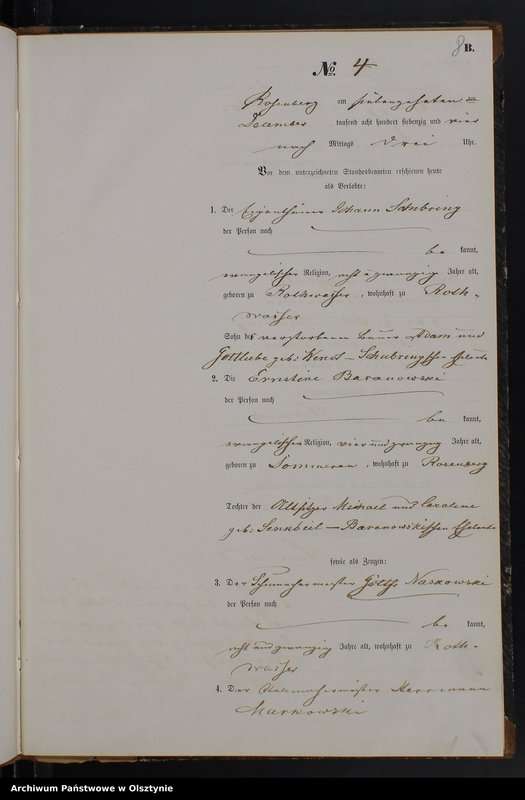 8 B.
No. 4
Rosenberg am siebenzehnten
Dezember tausend acht hundert siebenzig und vier
nach Mittags drei Uhr.
Vor dem unterzeichneten Standesbeamten erschienen heute
als Verlobte:
1. Der Eigenthümer Johann Schubring
der Person nach
be kannt,
evangelischer Religion, acht u zwanzig Jahre alt,
geboren zu Rothwasser, wohnhaft zu Roth-
wasser
Sohn des verstorbenen Bauer Adam und
Gottliebe geb: Wendt - Schubringschen Eheleute
2. Die Ernstine Baranowski
der Person nach
be kannt,
evangelischer Religion, vier und zwanzig Jahre alt,
geboren zu Sommerau, wohnhaft zu Rosenberg
Tochter der Altsitzer Michael und Caroline
geb: Senkbeil - Baranowskischen Eheleute
sowie als Zeugen:
3. Der Schumachermeister Gottfr. Naskowski
der Person nach
be kannt,
acht und zwanzig Jahre alt, wohnhaft zu Roth-
wasser
4. Der Herrmann
Murkowski
Archiwum Państwowe w Olsztynie